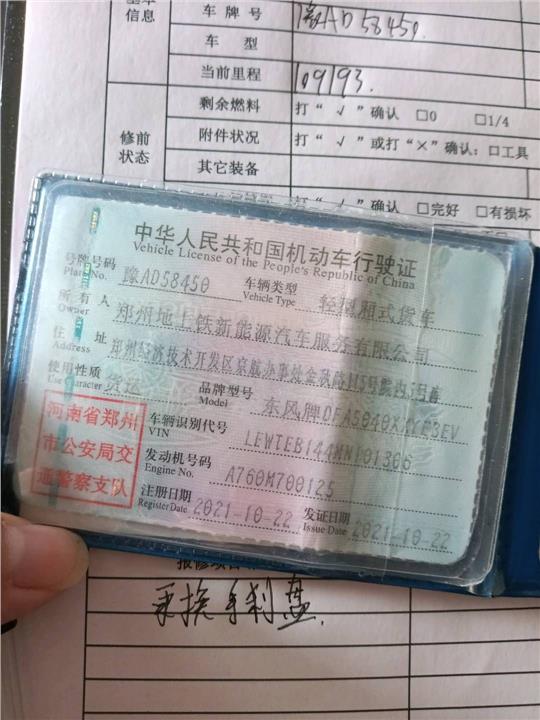 信息
车牌号 豫AD58450
车型
当前里程 109193
剩余燃料 打“√”确认 □0 □1/4
修前状态
附件状况 打“√”或打“×”确认:□工具
其它装备
打“√”确认 □完好 □有损坏
中华人民共和国机动车行驶证
Vehicle License of the People's Republic of China
号牌号码 豫AD58450 车辆类型 轻型厢式货车
Plate No. Vehicle Type
所有人 郑州地上铁新能源汽车服务有限公司
Owner
住址 郑州经济技术开发区京航办事处金
Address
使用性质 货运 品牌型号 东风牌
Use Character Model
河南省郑州市公安局交通警察支队
车辆识别代号
VIN LEWTEB144MN101306
发动机号码 A760M700125
Engine No.
注册日期 2021-10-22 发证日期 2021-10-22
Register Date Issue Date
手刹